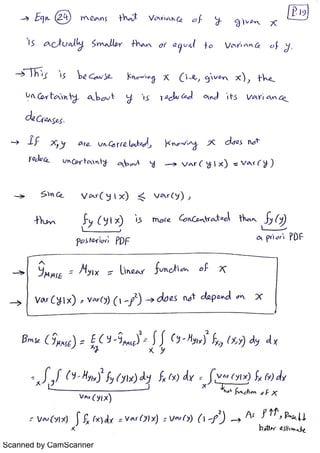 P19
→ Eqn. (24) means that variance of y given x
is actually smaller than or equal to variance of y.
→ This is because knowing x (i.e, given x), the
uncertainty about y is reduced and its variance
decreases.
→ If x,y are uncorrelated, Knowing x does not
reduce uncertainty about y → var(y|x) = var(y)
→ Since var(y|x) ≤ var(y),
then fy(y|x) is more concentrated than fy(y)
posteriori PDF a priori PDF
→ ŷMMSE = My|x = linear function of x
→ var(y|x) = var(y)(1-ρ²) → does not depend on x
Bmse(ŷMMSE) = E(y-ŷMMSE)² = ∫∫ (y-My|x)² fx,y(x,y) dy dx
x,y x y
= ∫∫ (y-My|x)² fy(y|x) dy fx(x) dx = ∫ var(y|x) fx(x) dx
x y x
var(y|x) not function of x
= var(y|x) ∫ fx(x) dx = var(y|x) = var(y)(1-ρ²) → As ρ↑↑, Bmse↓↓
x better estimate
Scanned by CamScanner